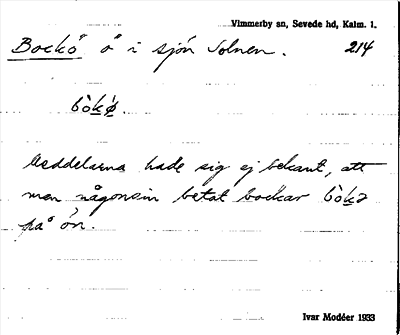 Vimmerby sn, Sevede hd, Kalm. l.
Bockö ö i sjön Solnen. 214
bòkǿ.
Meddelarna hade sig ej bekant, att
man någonsin betat bockar bòkə
på ön.
Ivar Modéer 1933